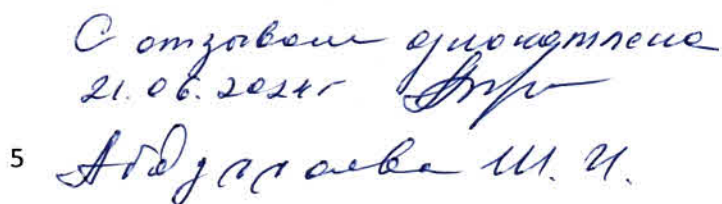 С отзывом ознакомлена
21.06.2024г
5 Абдуллаева Ш. И.